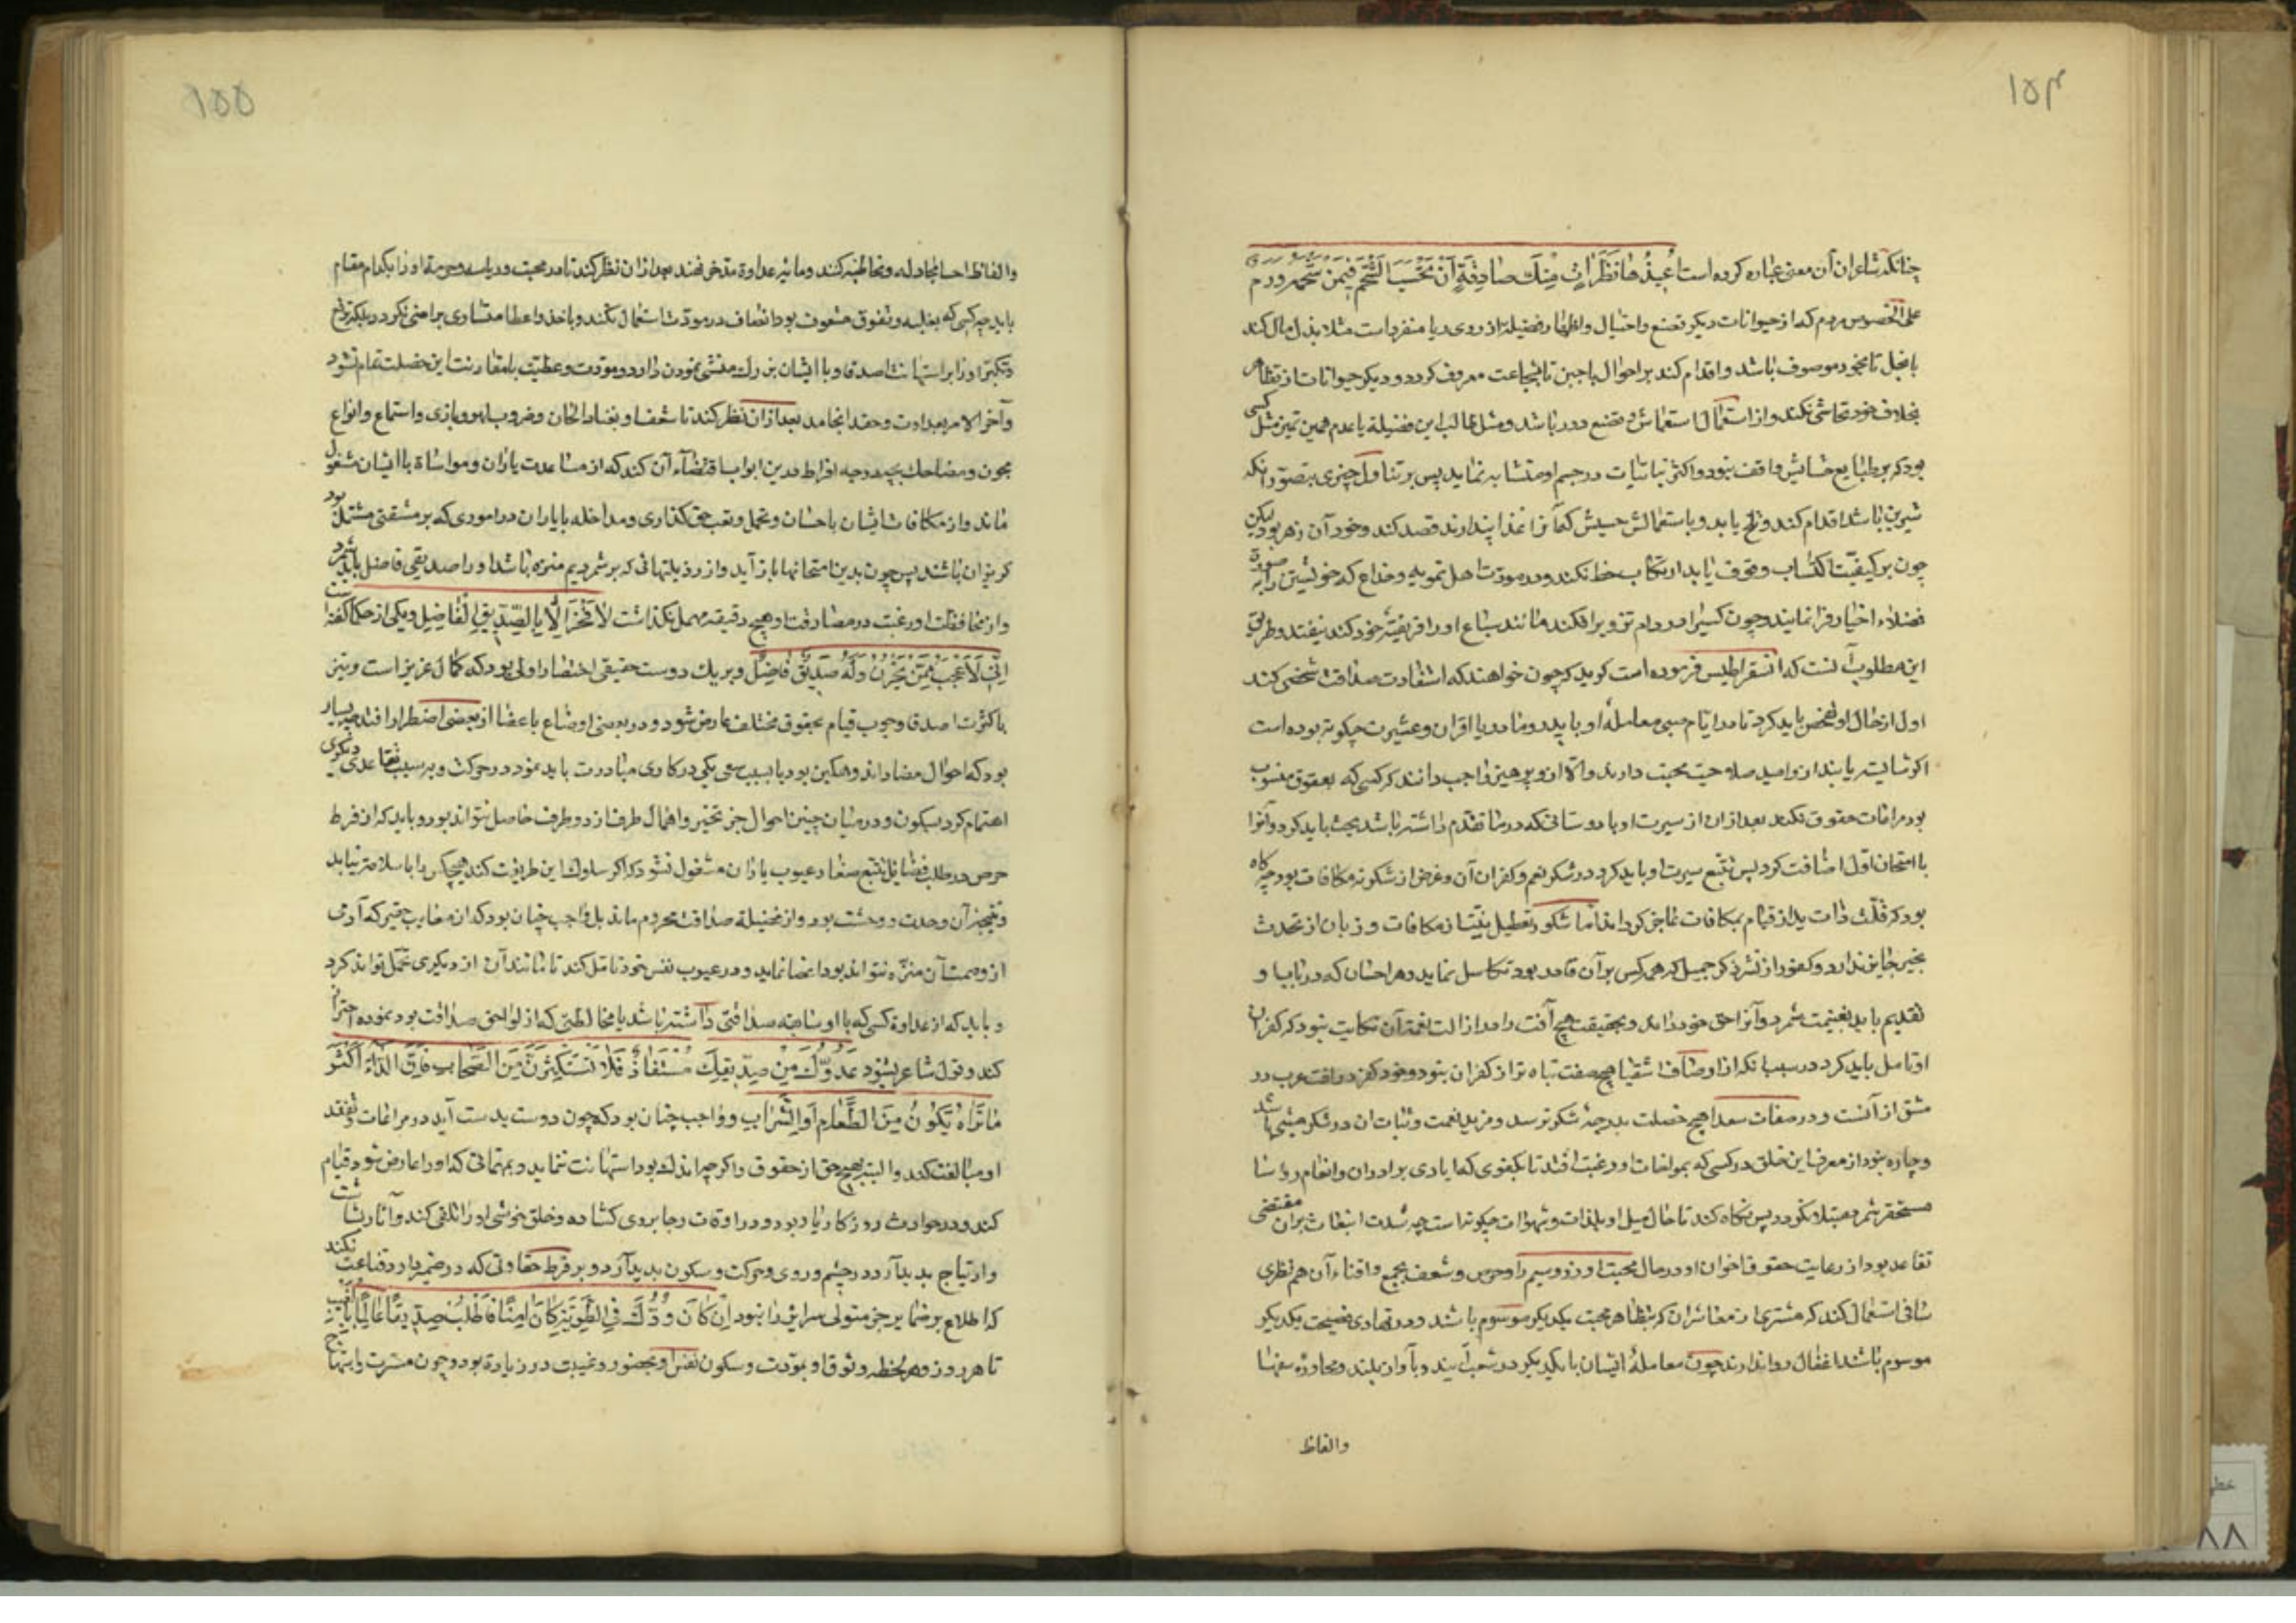 ۱۵۴
چنانکه شاعر ازان معنی عبارة کرده است أُعِیذُهَا نَظَرَاتٍ مِنْكَ صَادِقَةٍ أَنْ تَحْسَبَ الشَّحْمَ فِیمَنْ شَحْمُهُ وَرَمُ
علی الخصوص مردم که از حیوانات دیکر تصنع و احتیال و اظهار فضیلة از روی ریا منفردات مثلا بذل مال کند
با بخل تا بجود موصوف باشد و اقدام کند بر احوال با جبن تا بشجاعت معروف کردد و دیکر حیوانات از تظاهر
بخلاف خود تحاشی نکنند و از استعمال تصنع دور باشد و مثل طالب این فضیلة با عدم همین تمیز مثل کسی
بود که بر طبایع حشایش واقف نبود و اکثر نباتیات در چشم او متشابه نماید پس بر تناول چیزی بتصور انکه
شیرین باشد اقدام کند و تلخ یابد و باستعمالش حسیش که آنرا غذا پندارند قصد کند و خود آن زهر بود لیکن
چون بر کیفیت اکتساب وقوف یابد ارتکاب خطر نکند و در مودت اهل تمویه و خداع که خویشتن را بصورة
فضلاء اخیار فرا نمایند و چون کسی را در دام تزویر افکند مانند سباع او را فریسه خود کند نیفتد و طریق
این مطلوب آنست که انسقراطیس فرموده است کوید که چون خواهند که استفادت صداقت شخصی کند
اول از حال او تفحص باید کرد تا در ایام صبی معامله او با پدر و مادر یا اقران و عشیرت چکونه بوده است
اکر شایسته یابند ازو امید صلاحیت محبت دارند و الا ازو پرهیز واجب دانند که کسی که بعقوق منسوب
بود مراعات حقوق نکند بعد ازان از سیرت او با دوستانی که در ما تقدم داشته باشد بحث باید کرد و آنرا
با امتحان اول اضافت کرد پس تتبع سیرت او باید کرد در شکر نعم و کفران آن و غرض از شکر نه مکافات بود چه کاه
بود که قلت ذات ید از قیام بمکافات عاجز کرداند اما شکور تعطیل نیت از مکافات و زبان از تحدث
بخیر جایز ندارد و کفور از نشر ذکر جمیل که همه کس بر آن قادر بود تکاسل نماید و هر احسان که در باب او
تقدیم یابد بغنیمت شمرد و آنرا حق خود داند و بحقیقت هیچ آفت را در ازالت نعمة آن نکایت نبود که کفران
او تامل باید کرد در سبب آنکه از اوصاف اشقیا هیچ صفت تباه تر از کفران نبود و خود کفر در لغت عرب در
مشق از آنست و در صفات سعدا هیچ خصلت بدرجه شکر نرسد و مزید نعمت و ثبات ان در شکر مبنی باشد
و چاره نبود از معرفت این خلق در کسی که بمؤاخات او رغبت افتد تا بکفوری که ایادی برادران و انعام رؤسا
مستحقر شمرد مبتلا نکردد پس نکاه کند تا حال میل او بلذات و شهوات چکونه است چه شدت انبعاث بران مقتضی
تقاعد بود از رعایت حقوق اخوان او در حال محبت او زر و سیم را و حرص و شعف بجمع و اقتناء آن هم نظری
شافی استعمال کند که مشتری از معاشران که بتظاهر محبت یکدیکر موسوم باشد و در تهادی نصیحت یکدیکر
موسوم باشد اغفال روا ندارند چون معاملهٔ ایشان با یکدیکر در شعب آیند و بآواز بلند و محاورهٔ سفها
والفاظ
۱۵۵
والفاظ احسا مجادله و مخاطبه کنند و مانیه عداوة متدخر نهند بعد ازان نظر کند تا در محبت و ریاسه و حرص او را بکدام مقام
باید چه کسی که بغلبه و تفوق مشعوف بود انصاف در مودت استعمال نکند و باخذ و اعطا متساوی راضی نکردد بلکه ترفع
و تکبر او را بر استهانت اصدقا و با ایشان بزرک منشی نمودن دارد و مودت و عظیت بامقارنت این خصلت تمام نشود
و آخر الامر بعداوت و حقد انجامد بعد ازان نظر کند تا شعف او بغنا و الحان و ضروب لهو و بازی و استماع و انواع
مجون و مضاحک بچه درجه افراط در این ابواب اقتضاء آن کند که از مساعدت یاران و مواساة با ایشان مشغول
ماند و از مکافات ایشان باحسان و تحمل و تعب حق کذاری و مداخله با یاران در اموری که بر مشقتی مشتمل بود
کریزان باشند پس چون بدین امتحانها باز آید و از رذیلتهائی که بر شمردیم منزه باشد او را صدیقی فاضل باید شمرد
و از محافظت او رغبت در مصادقت او هیچ دقیقه مهمل نکذاشت لا فَخْرَ إِلَّا بِالصَّدِیقِ الْفَاضِلِ و یکی از حکما کفته است
اِنِّی لَأَعْجَبُ مِمَّنْ یَحْزَنُ وَلَهُ صَدِیقٌ فَاضِلٌ و بر یک دوست حقیقی اختصار اولی بود که کمال عزیز است و نیز
با کثرت اصدقا وجوب قیام بحقوق مختلف عارض شود و در بعضی اوضاع باغضا از بعضی اضطرار افتد چه بسیار
بود که احوال متضاد اند و ممکن بود با بسبب سعی یکی در کاری مبادرت باید نمود در حرکت و بر سبب تقاعد دیکری
اهتمام کرد بسکون و در میان چنین احوال جز تحیر و اهمال طرفی از دو طرف حاصل نتواند بود و باید که از فرط
حرص در طلب فضایل بتتبع صغار عیوب یاران مشغول نشود که اکر سلوک این طریقت کند هیچکس را با سلامتر نیابد
و نتیجه آن وحدت و وحشت بود و از فضیلة صداقت محروم ماند بل واجب چنان بود که از معایب حقیر که آدمی
از وصمت آن منزه نتواند بود اغضا نماید و در عیوب نفس خود تامل کند تا مانند آن از دیکری تحمل تواند کرد
و باید که از عداوة کسی که با او سابقه صداقتی داشته باشد یا مخالطتی که از لواحق صداقت بود نموده احتراز
کند و قول شاعر بشنود عَدُوُّكَ مِنْ صَدِیقِكَ مُسْتَفَادٌ فَلَا تَسْتَكْثِرَنَّ مِنَ الصِّحَابِ فَإِنَّ الدَّاءَ أَكْثَرَ
مَا تَرَاهُ یَكُونُ مِنَ الطَّعَامِ أَوِ الشَّرَابِ و واجب چنان بود که چون دوست بدست آید در مراعات و تفقد
او مبالغت کند و البته بهیچ حق از حقوق و اکرچه اندک بود استهانت ننماید و بمهماتی که او را عارض شود قیام
کند و در حوادث روزکار یار بود و در اوقات رجا بروی کشاده و خلق خوشی او را تلقی کند و آثار بشاشت
و ارتیاح بدیدار در چشم و روی و حرکت و سکون بدید آرد و بر فرط حفاوتی که در ضمیر دارد قناعت نکند
که اطلاع بر ضمایر جز متولی سرایر را نبود اِنْ كَانَ وُدُّكَ فِی الطَّوِیَّةِ كَامِنًا فَاطْلُبْ صَدِیقًا عَالِمًا بِالْغَیْبِ
تا هر روز و هر لحظه وثوق او بمودت و سکون نفس او بحضور و غیبت در زیادة بود و چون مسرت و ابتهاج